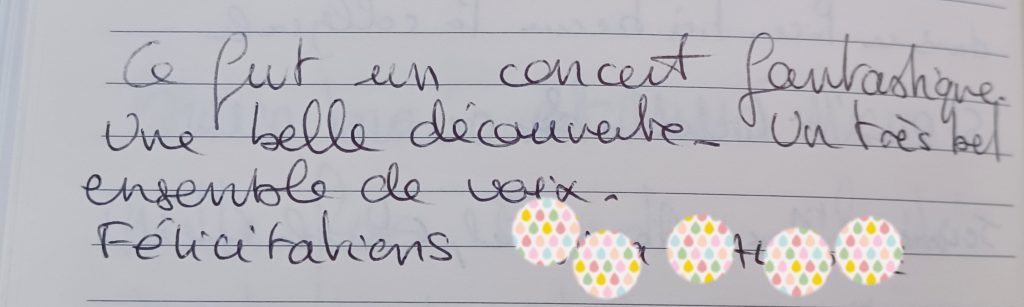 Ce fut un concert fantastique.
Une belle découverte. Un très bel
ensemble de voix.
Félicitations